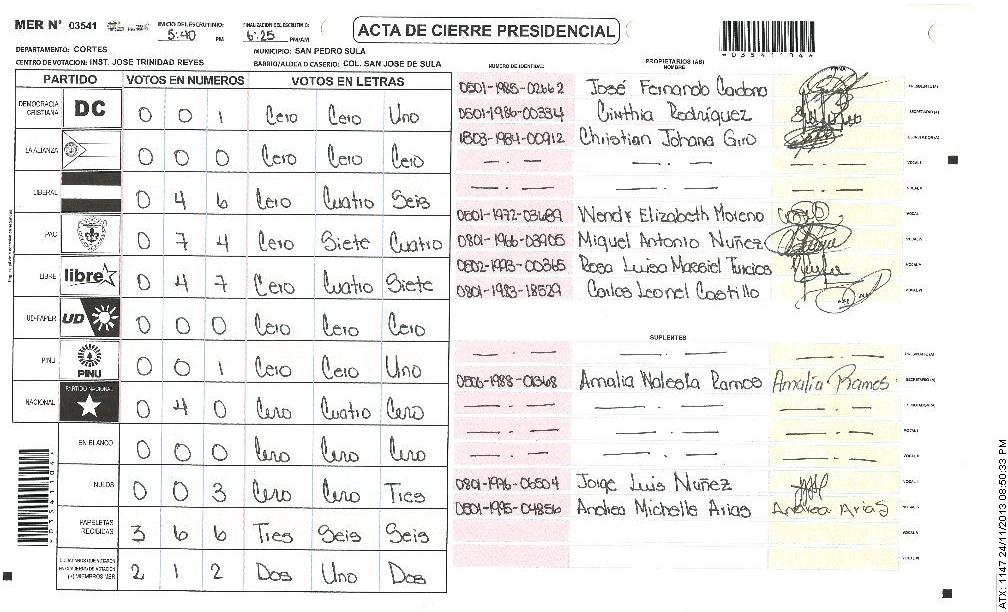 MER N° 03541
INICIO DEL ESCRUTINIO: 5:40 PM
FINALIZACION DEL ESCRUTINIO: 6:25 PM/AM
ACTA DE CIERRE PRESIDENCIAL
DEPARTAMENTO: CORTES
MUNICIPIO: SAN PEDRO SULA
CENTRO DE VOTACION: INST. JOSE TRINIDAD REYES
BARRIO/ALDEA O CASERIO: COL. SAN JOSE DE SULA
PARTIDO VOTOS EN NUMEROS VOTOS EN LETRAS
DEMOCRACIA CRISTIANA DC 0 0 1 Cero Cero Uno
LA ALIANZA 0 0 0 Cero Cero Cero
LIBERAL 0 4 6 Cero Cuatro Seis
PAC 0 7 4 Cero Siete Cuatro
LIBRE libre 0 4 7 Cero Cuatro Siete
UD-FAPER UD 0 0 0 Cero Cero Cero
PINU PINU 0 0 1 Cero Cero Uno
NACIONAL PARTIDO NACIONAL 0 4 0 Cero Cuatro Cero
EN BLANCO 0 0 0 Cero Cero Cero
NULOS 0 0 3 Cero Cero Tres
PAPELETAS RECIBIDAS 3 6 6 Tres Seis Seis
2 1 2 Dos Uno Dos
NUMERO DE IDENTIDAD
PROPIETARIOS (AS)
NOMBRE
FIRMA
0501-1985-02662 José Fernando Cardona PRESIDENTE(A)
0501-1986-00334 Cinthia Rodríguez SECRETARIO(A)
1803-1984-00912 Christian Johana Giro ESCRUTADOR(A)
VOCAL I
VOCAL II
0501-1972-03689 Wendy Elizabeth Moreno
0801-1966-03905 Miguel Antonio Nuñez
0502-1993-00365 Rosa Luisa Massiel Turcios
0801-1983-18529 Carlos Leonel Castillo
SUPLENTES
0506-1988-01368 Amalia Ramos Amalia Ramos SECRETARIO(A)
0801-1996-06504 Jorge Luis Nuñez
0501-1995-04856 Andrea Michelle Arias Andrea Arias
ATX: 1147 24/11/2013 08:50:33 PM